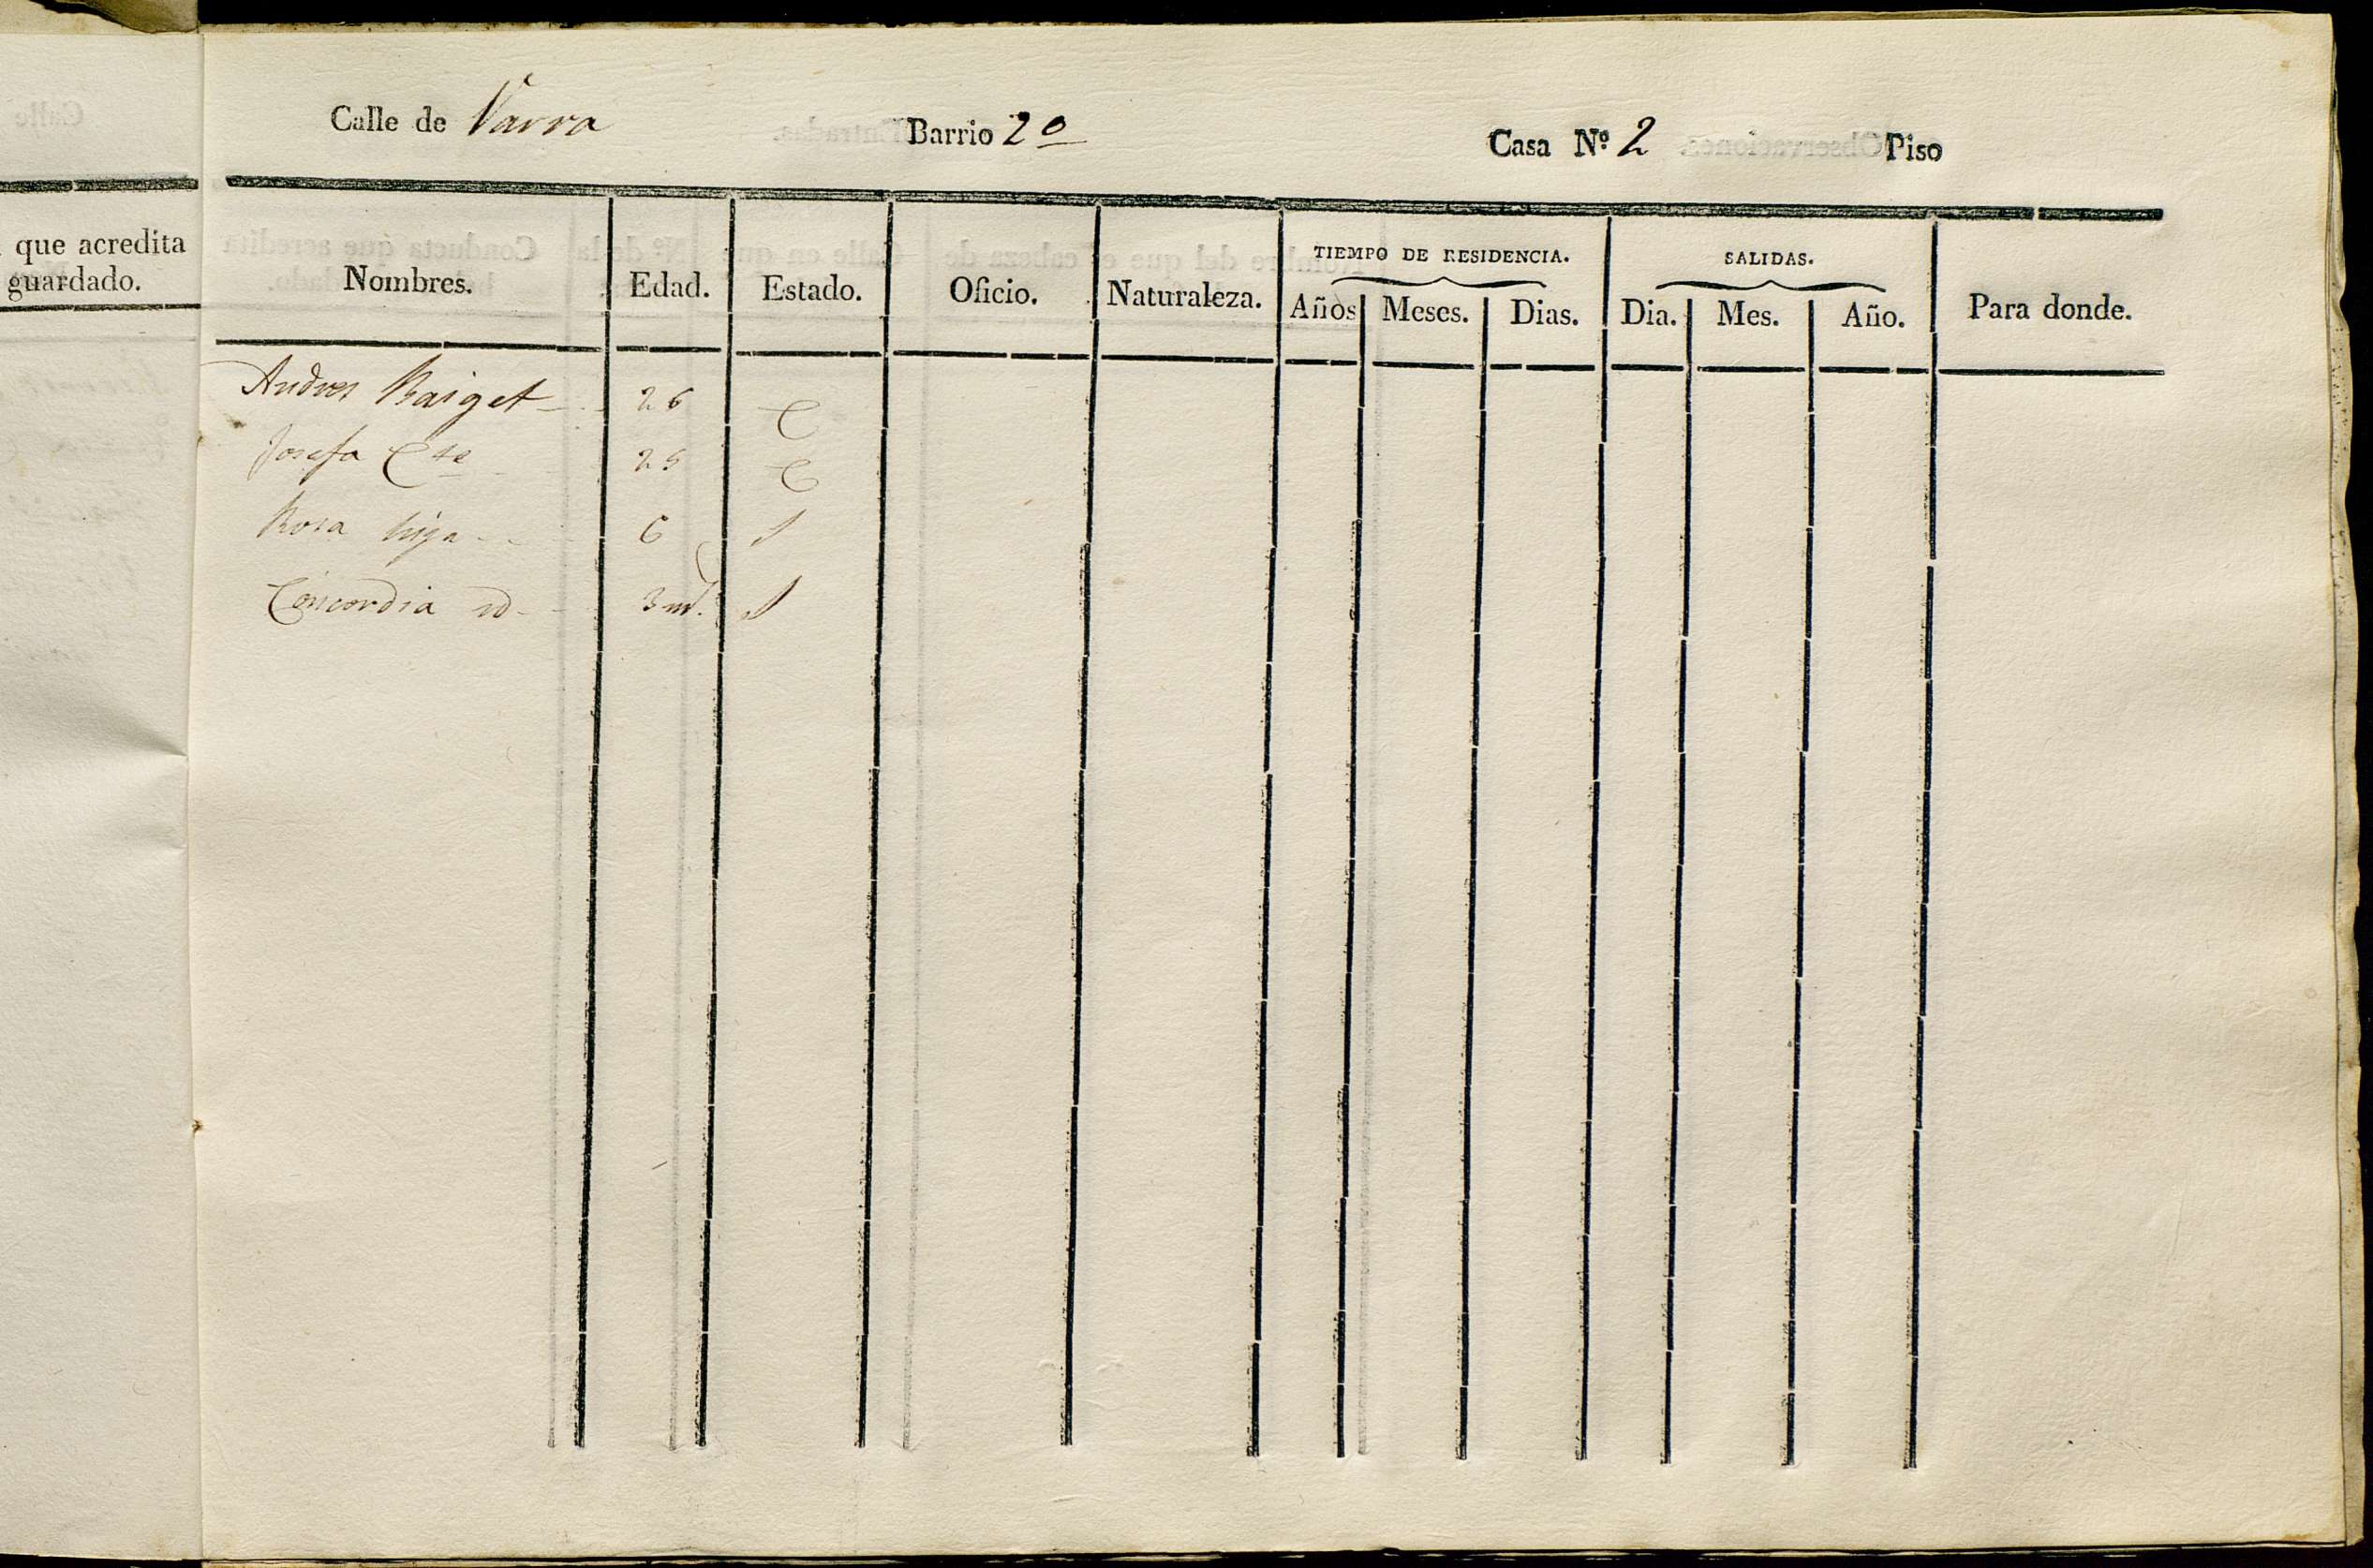 Calle de Varra Barrio 2º Casa Nº 2 Piso
que acredita
guardado.
TIEMPO DE RESIDENCIA. SALIDAS.
Nombres. Edad. Estado. Oficio. Naturaleza. Años Meses. Dias. Dia. Mes. Año. Para donde.
Andres Baiget 26 C
Josefa Cte 25 C
Rosa hija 6 S
Concordia id 3 m.s S